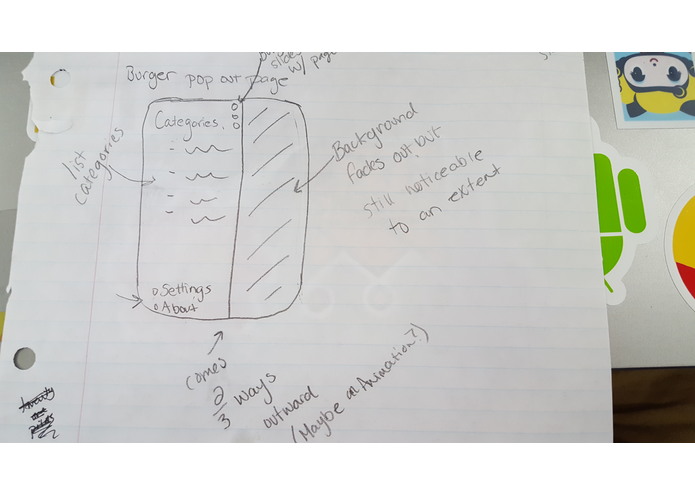 slides
w/ page
Burger pop out page
Categories
list
categories
Background
fades out but
still noticeable
to an extent
Settings
About
comes
2/3 ways
outward
(Maybe an Animation?)